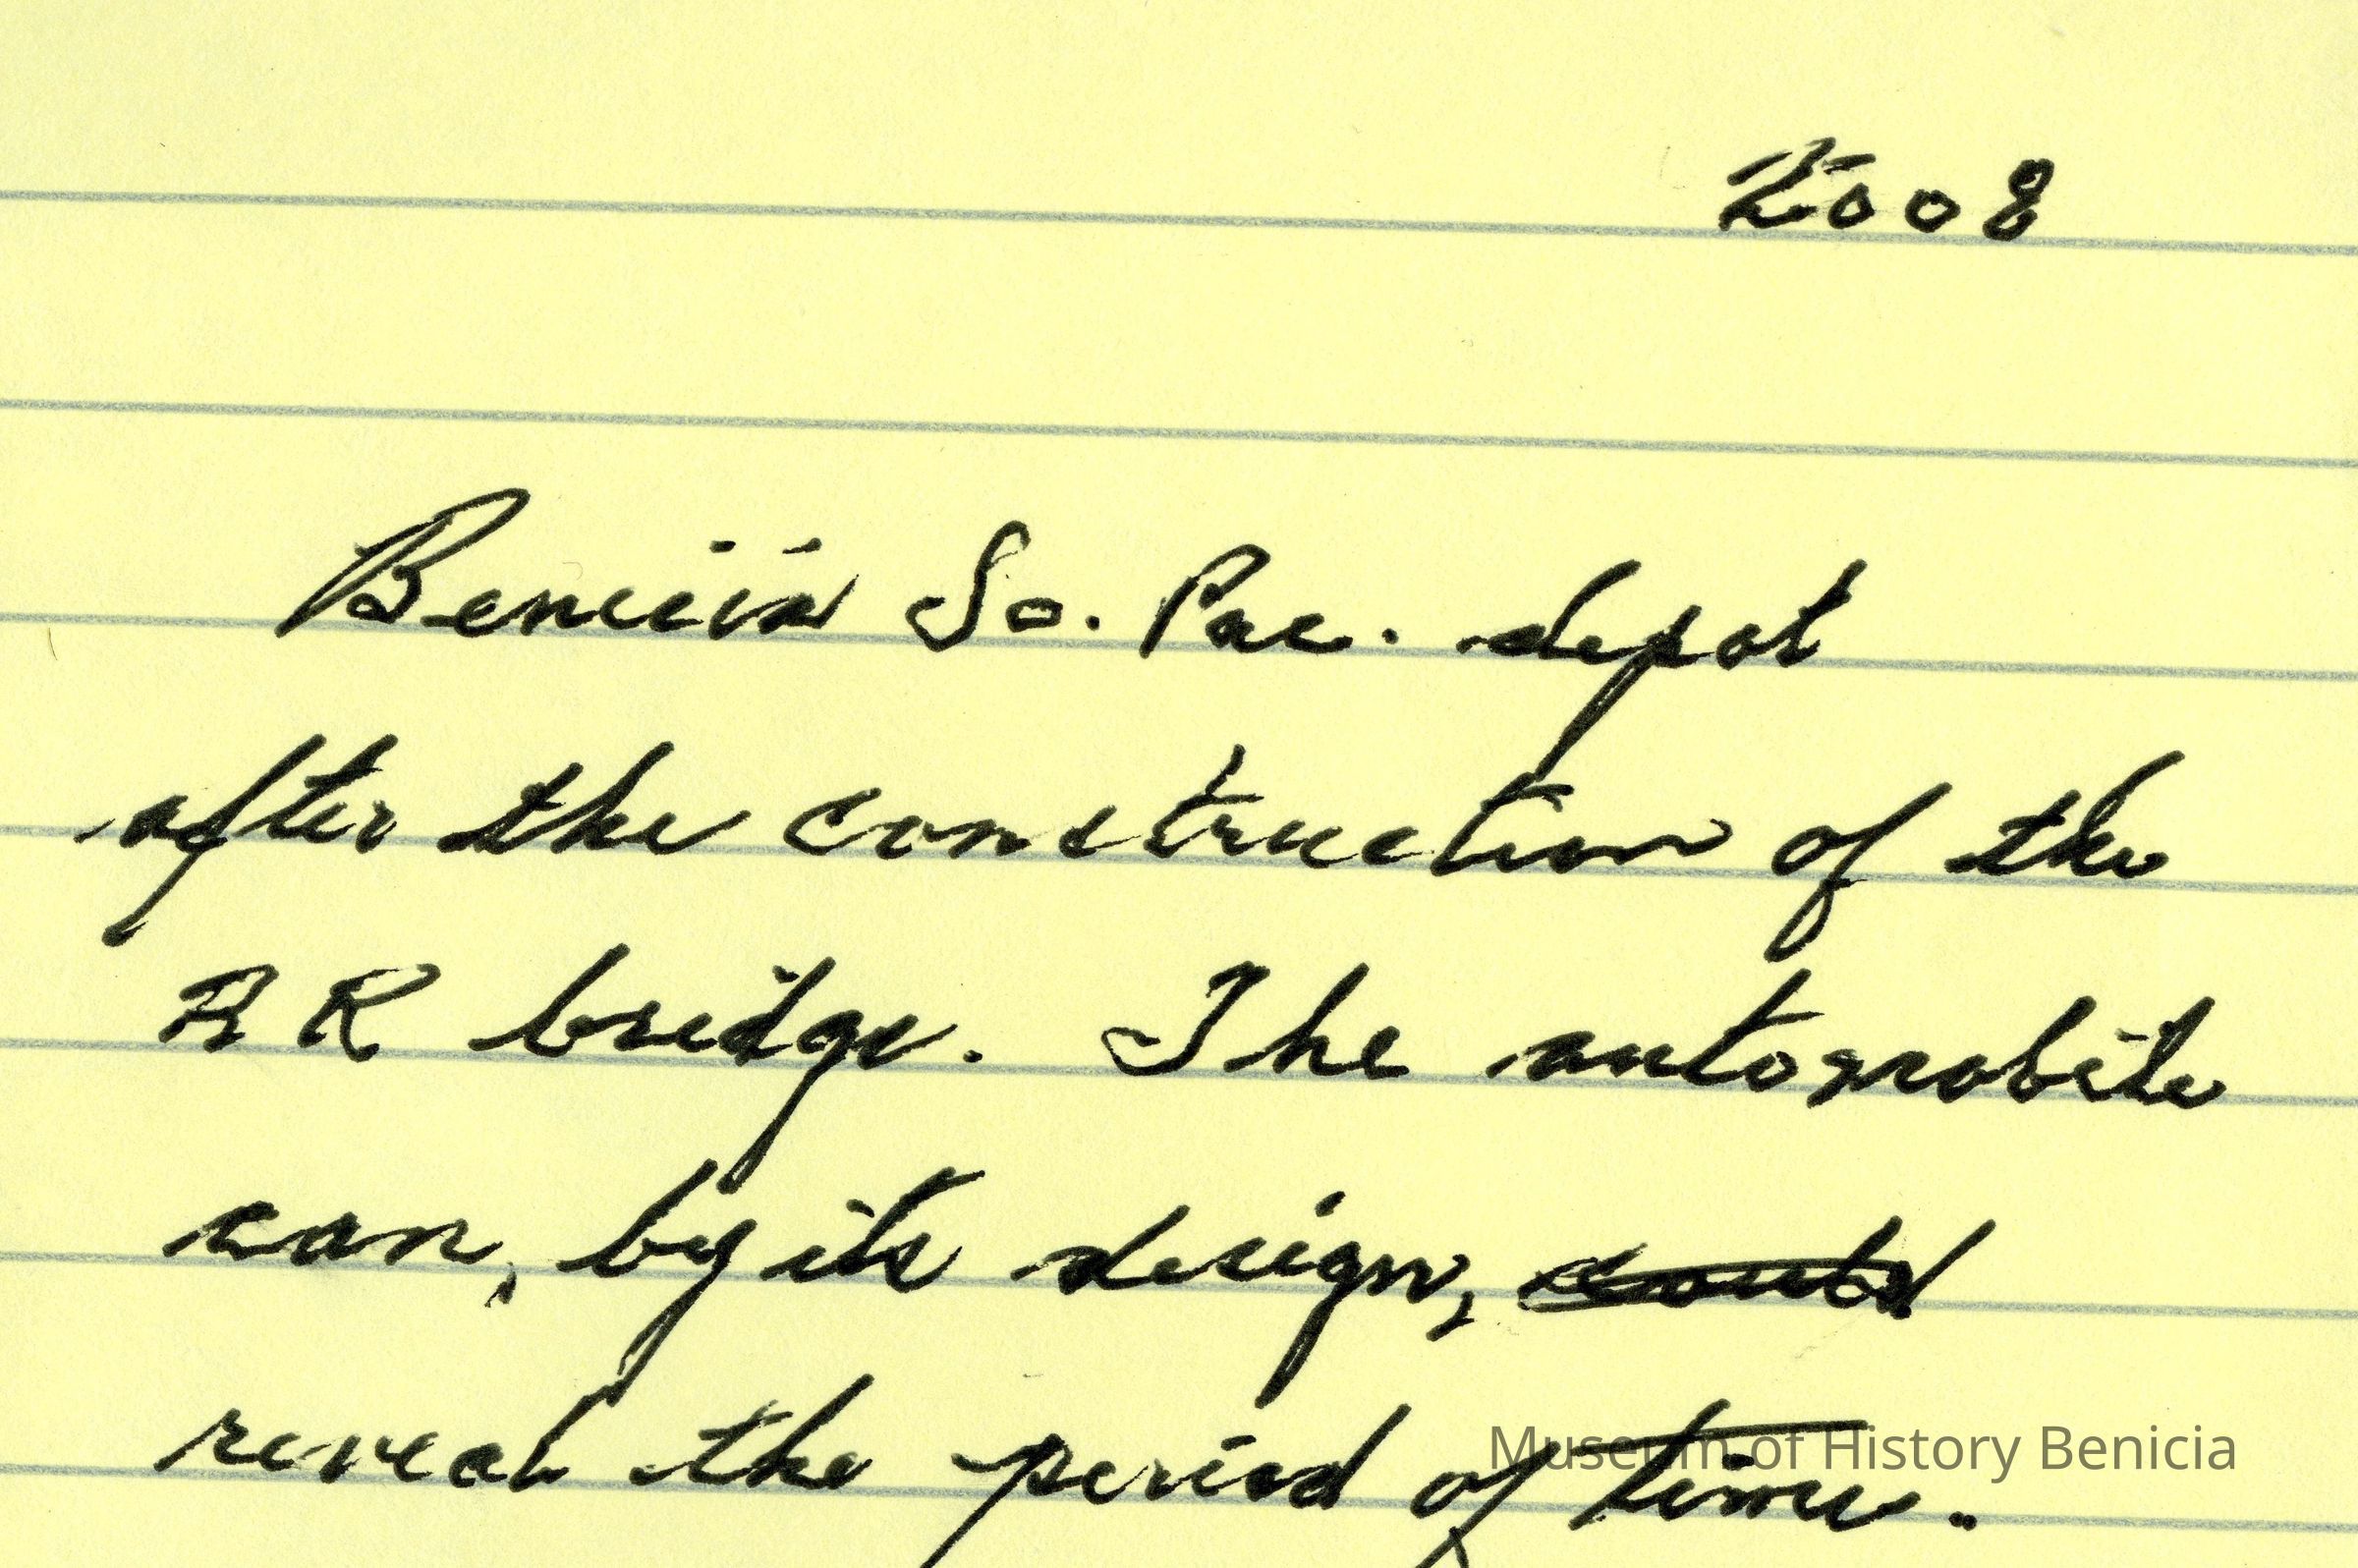 2008
Benicia So. Pac. depot
after the construction of the
RR bridge. The automobile
can, by its design, could
reveal the period of time.
Museum of History Benicia